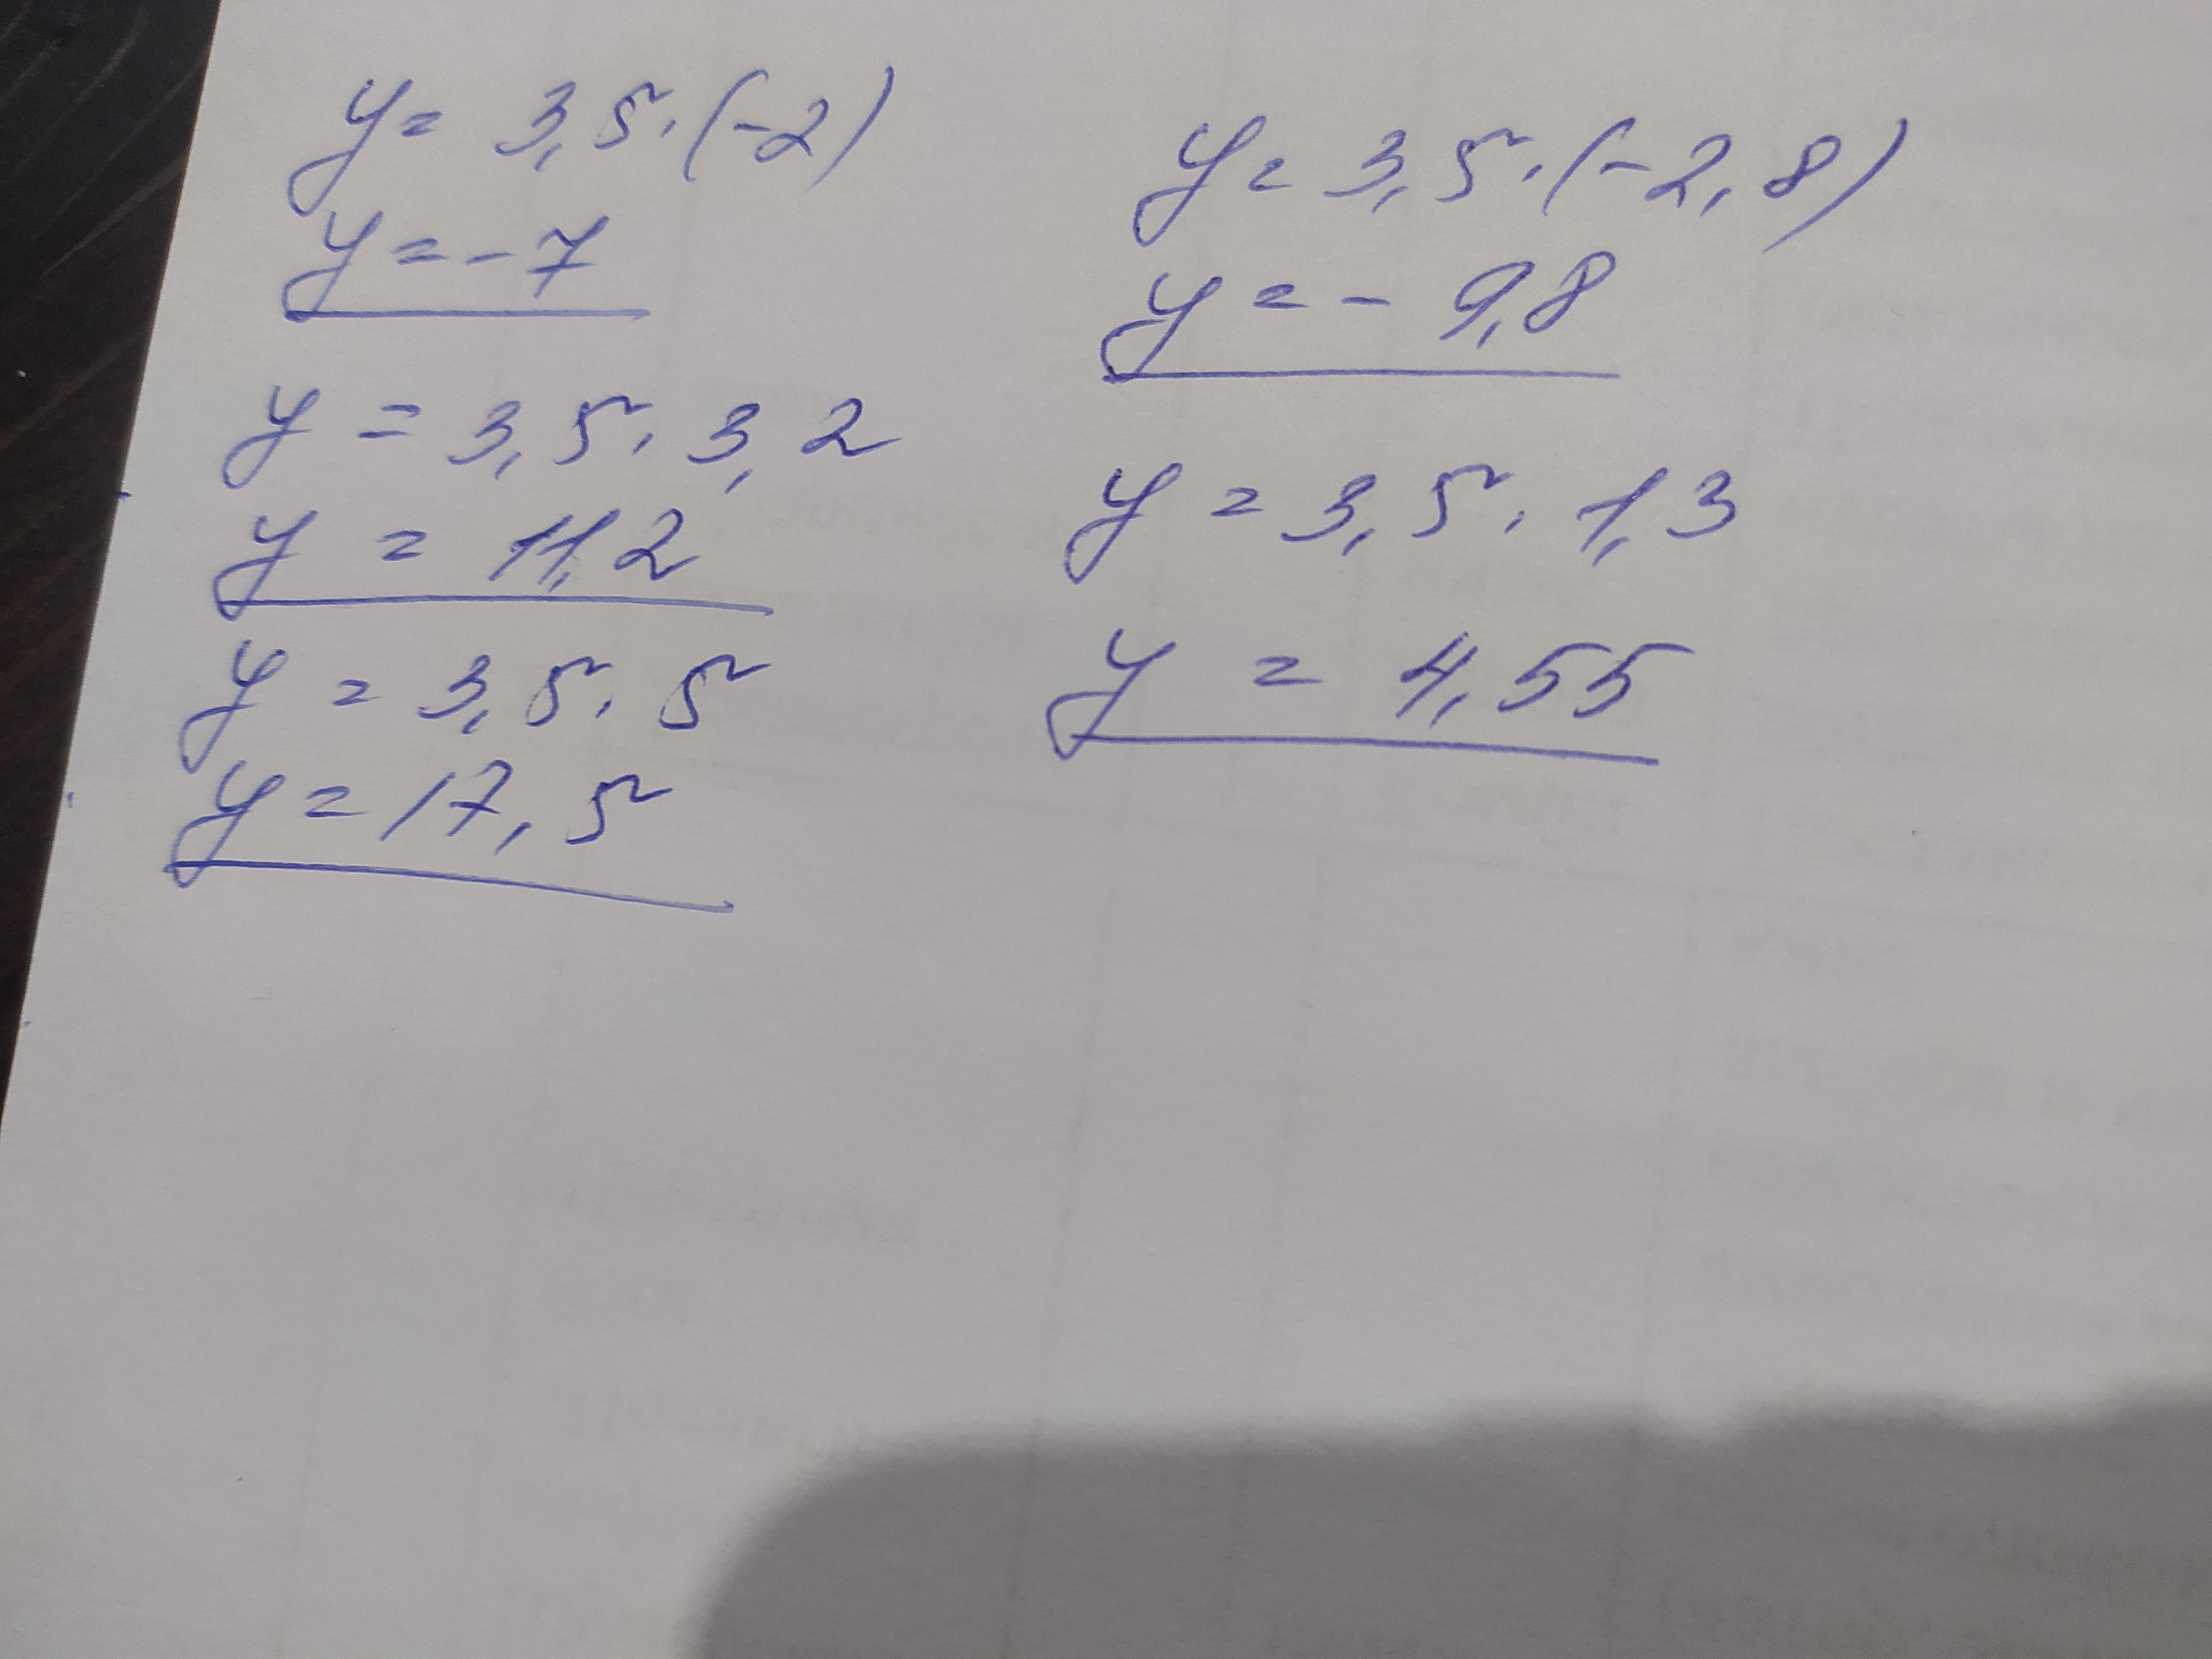 y = 3,5 · (-2)
y = -7
y = 3,5 · 3,2
y = 11,2
y = 3,5 · 5
y = 17,5
y = 3,5 · (-2,8)
y = - 9,8
y = 3,5 · 1,3
y = 4,55